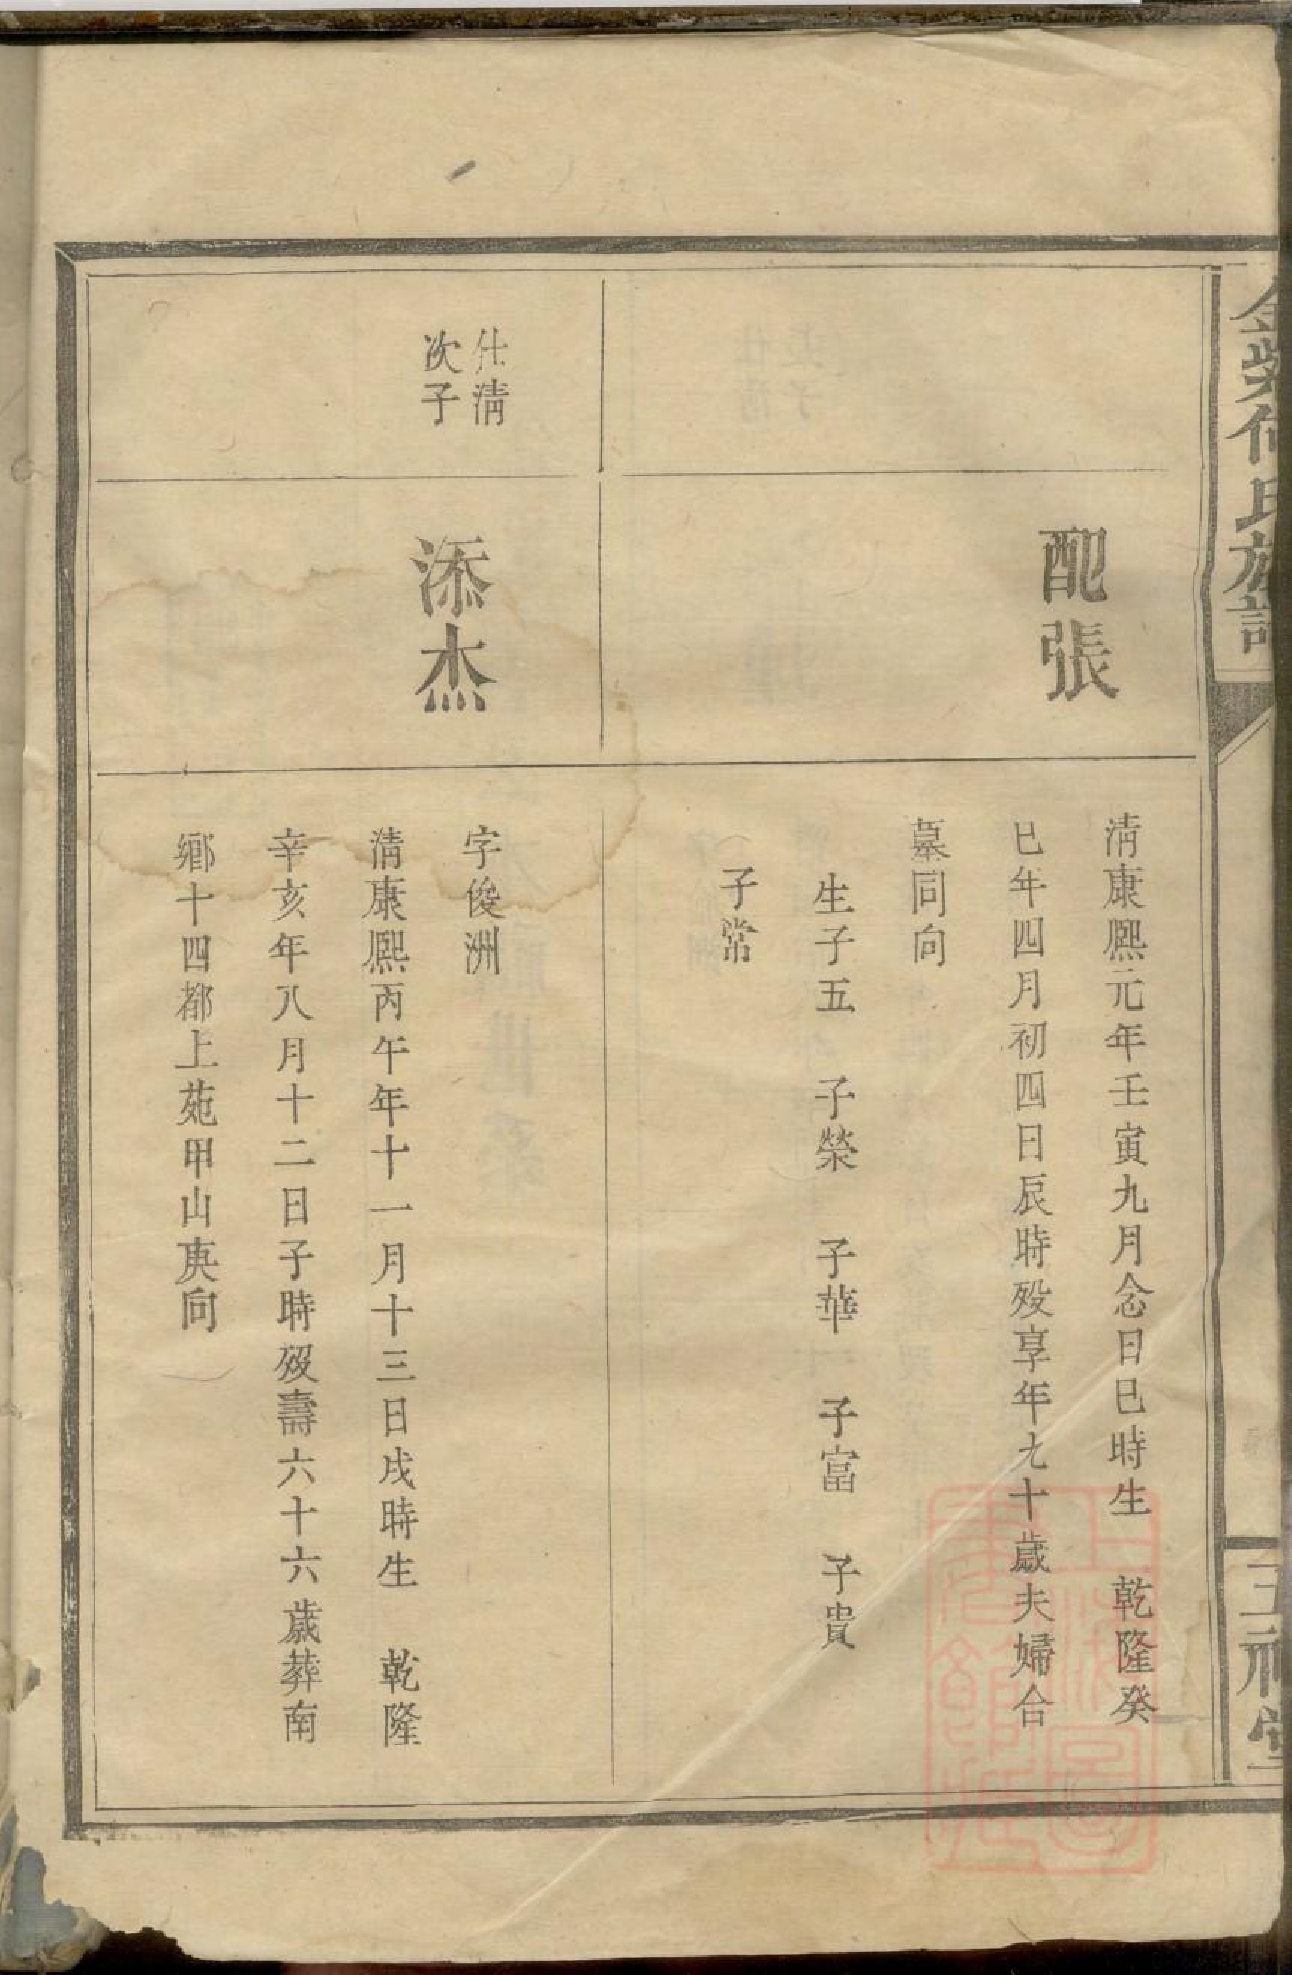 金紫何氏族譜
配張
清康熙元年壬寅九月念日巳時生　乾隆癸
巳年四月初四日辰時歿享年九十歲夫婦合
墓同向
生子五　子榮　子華　子富　子貴
子常
仕清
次子
添杰
字俊洲
清康熙丙午年十一月十三日戌時生　乾隆
辛亥年八月十二日子時歿壽六十六歲葬南
鄉十四都上苑甲山庚向
上海圖
書館藏